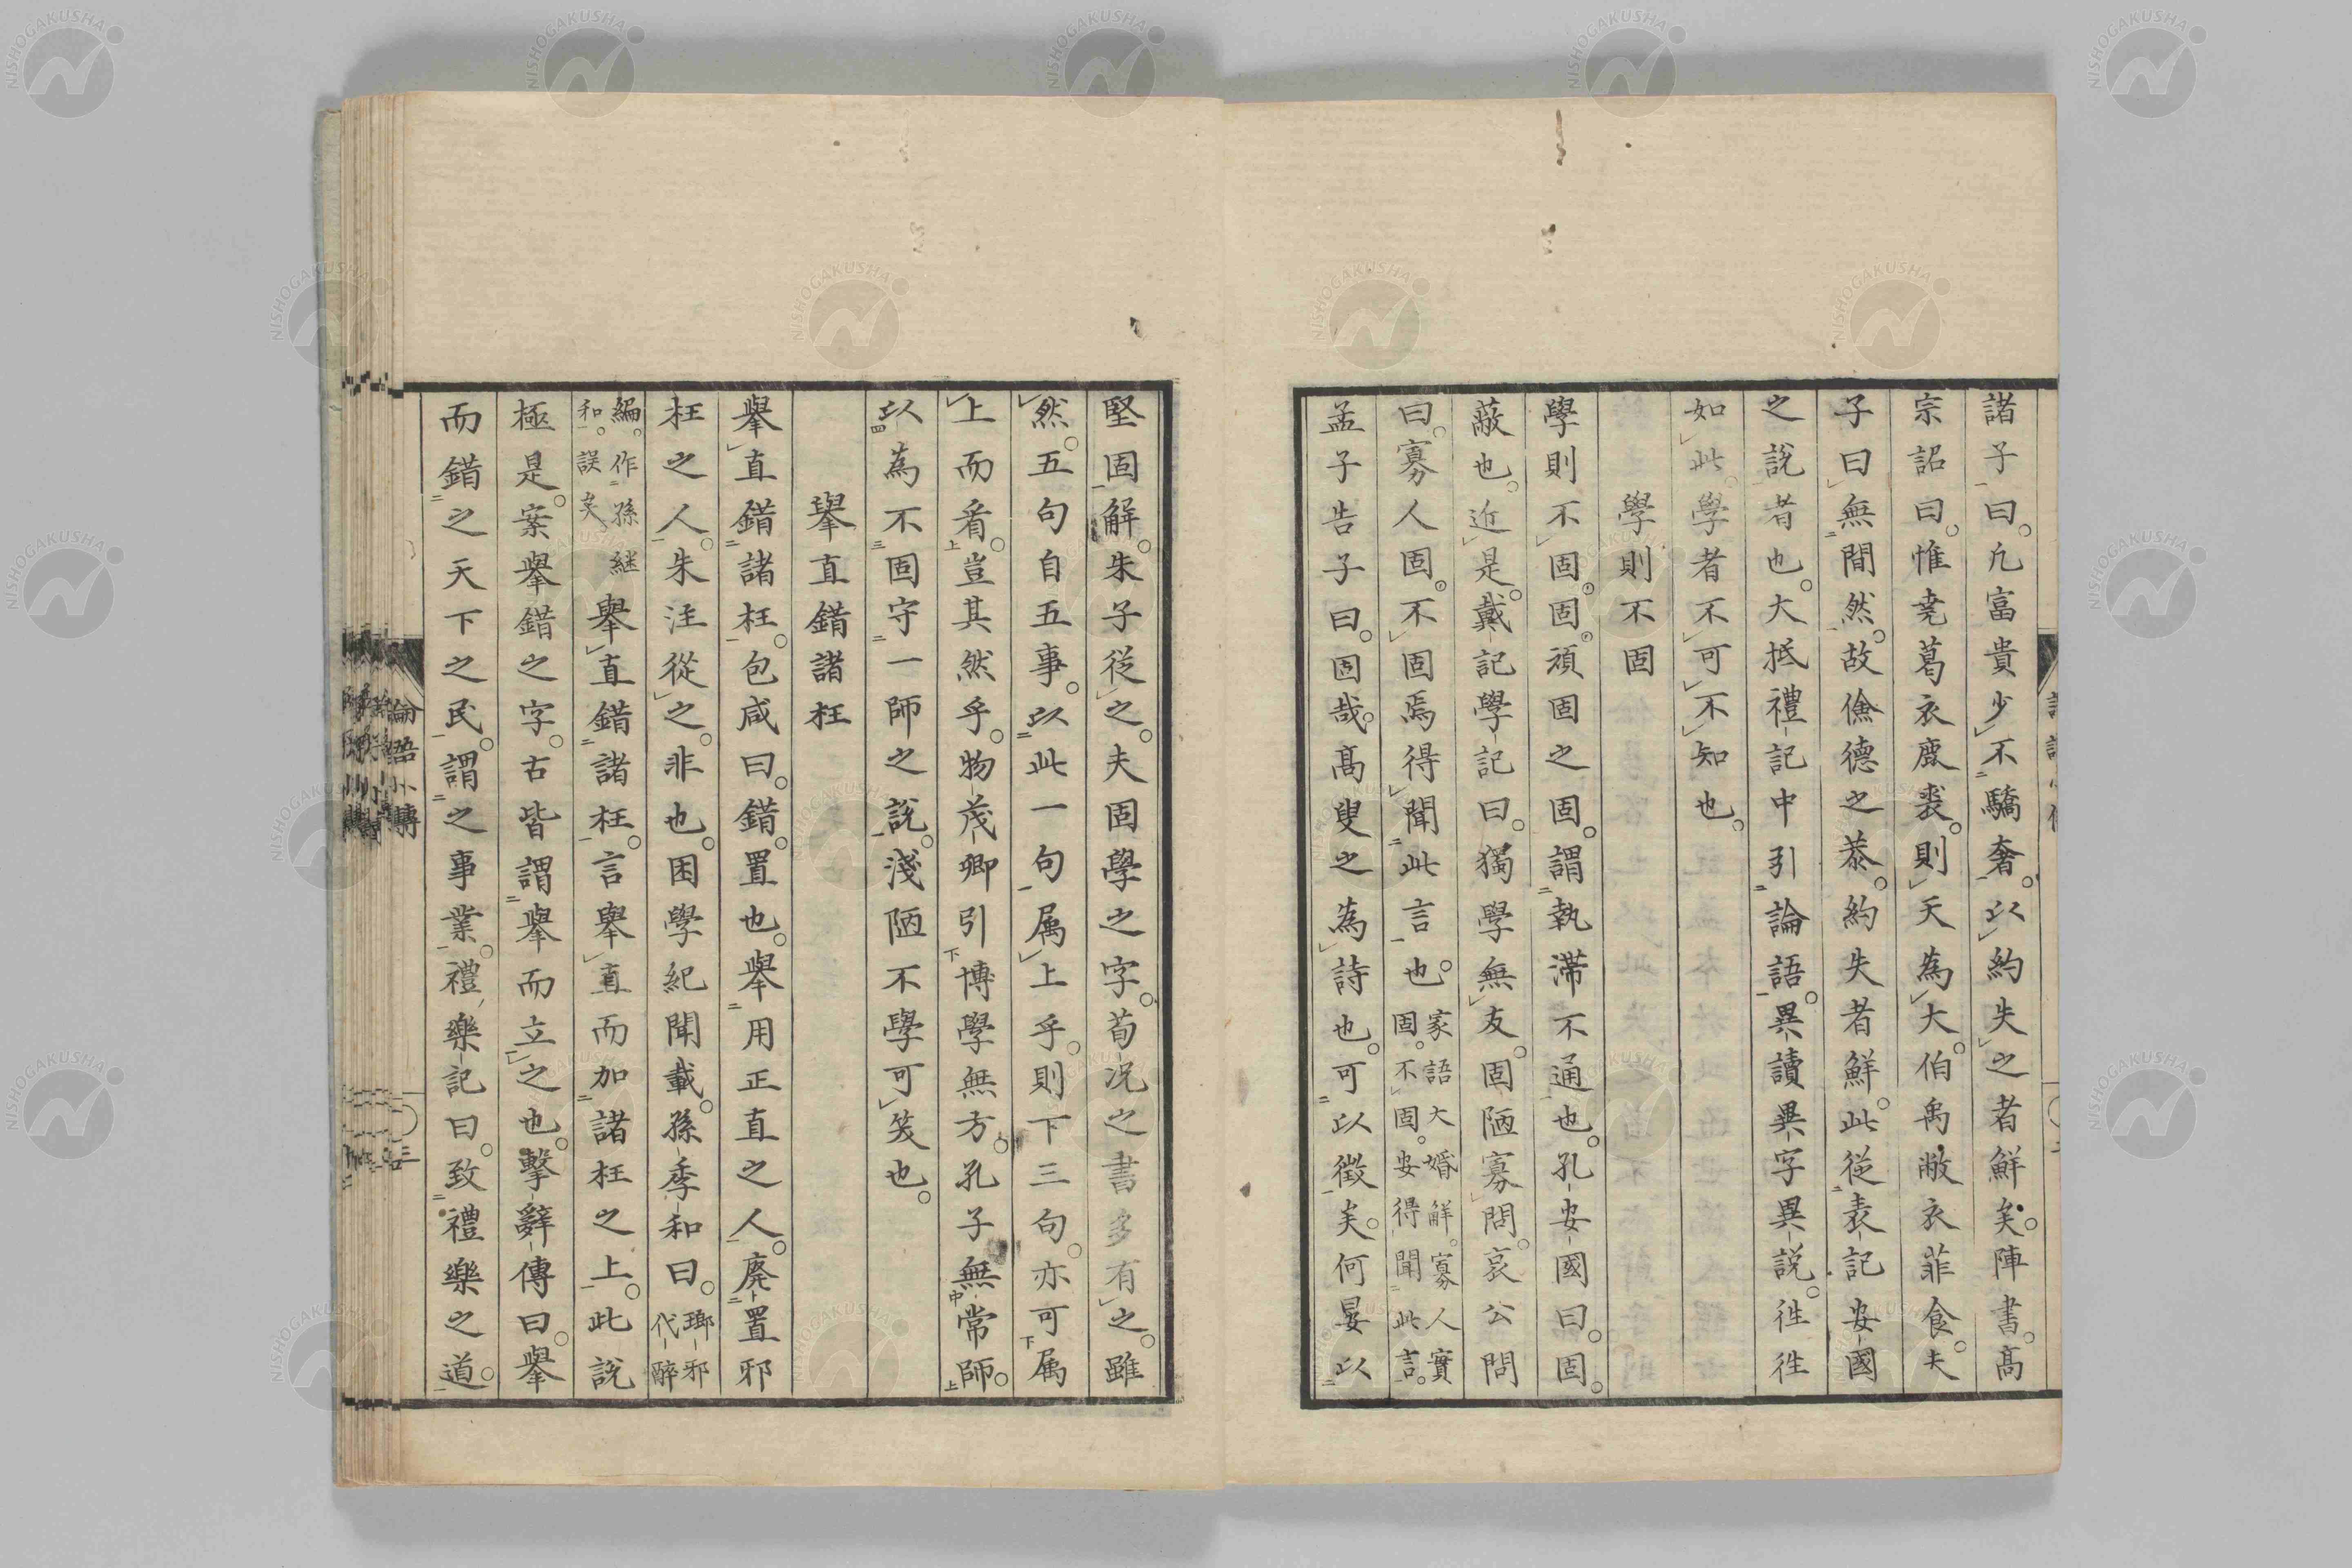 諸子曰。凢富貴少不驕奢。以約失之者鮮矣。陣書。髙
宗詔曰。惟尭葛衣鹿裘。則天為大。伯禹敝衣菲食。夫
子曰。無間然。故儉德之㳟。約失者鮮。此從表記安國
之說者也。大抵禮記中引論語。異讀異字異說。徃徃
如此。學者不可不知也。
學則不固
學則不固。固。頑固之固。謂執滯不通也。孔安國曰。固。
蔽也。近是。戴記學記曰。獨學無友。固陋寡問。哀公問
曰。寡人固。不固焉得聞此言也。家語大婚解。寡人實固。不固。安得聞此言。
孟子告子曰。固哉。髙叟之為詩也。可以徴矣。何晏以
堅固解。朱子從之。夫固學之字。荀況之書多有之。雖
然。五句自五事。以此一句属上乎。則下三句。亦可属
上而看。豈其然乎。物茂卿引博學無方。孔子無常師。
以為不固守一師之說。淺陋不學可笑也。
擧直錯諸枉
擧直錯諸枉。包咸曰。錯。置也。擧用正直之人。廃置邪
枉之人。朱注從之。非也。困學紀聞載。孫季和曰。瑯邪代醉
編。作孫継和。誤矣。擧直錯諸枉。言擧直而加諸枉之上。此說
極是。案擧錯之字。古皆謂擧而立之也。繫辭傳曰。擧
而錯之天下之民。謂之事業。禮樂記曰。致禮樂之道。
論語小傳
三
NISHOGAKUSHA